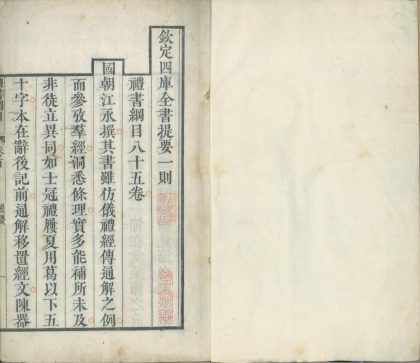 欽定四庫全書提要一則
禮書綱目八十五卷
國朝江永撰其書雖仿儀禮經傳通解之例
而參攷羣經洞悉條理實多能補所未及
非徒立異同如士冠禮屨夏用葛以下五
十字本在辭後記前通解移置經文陳器